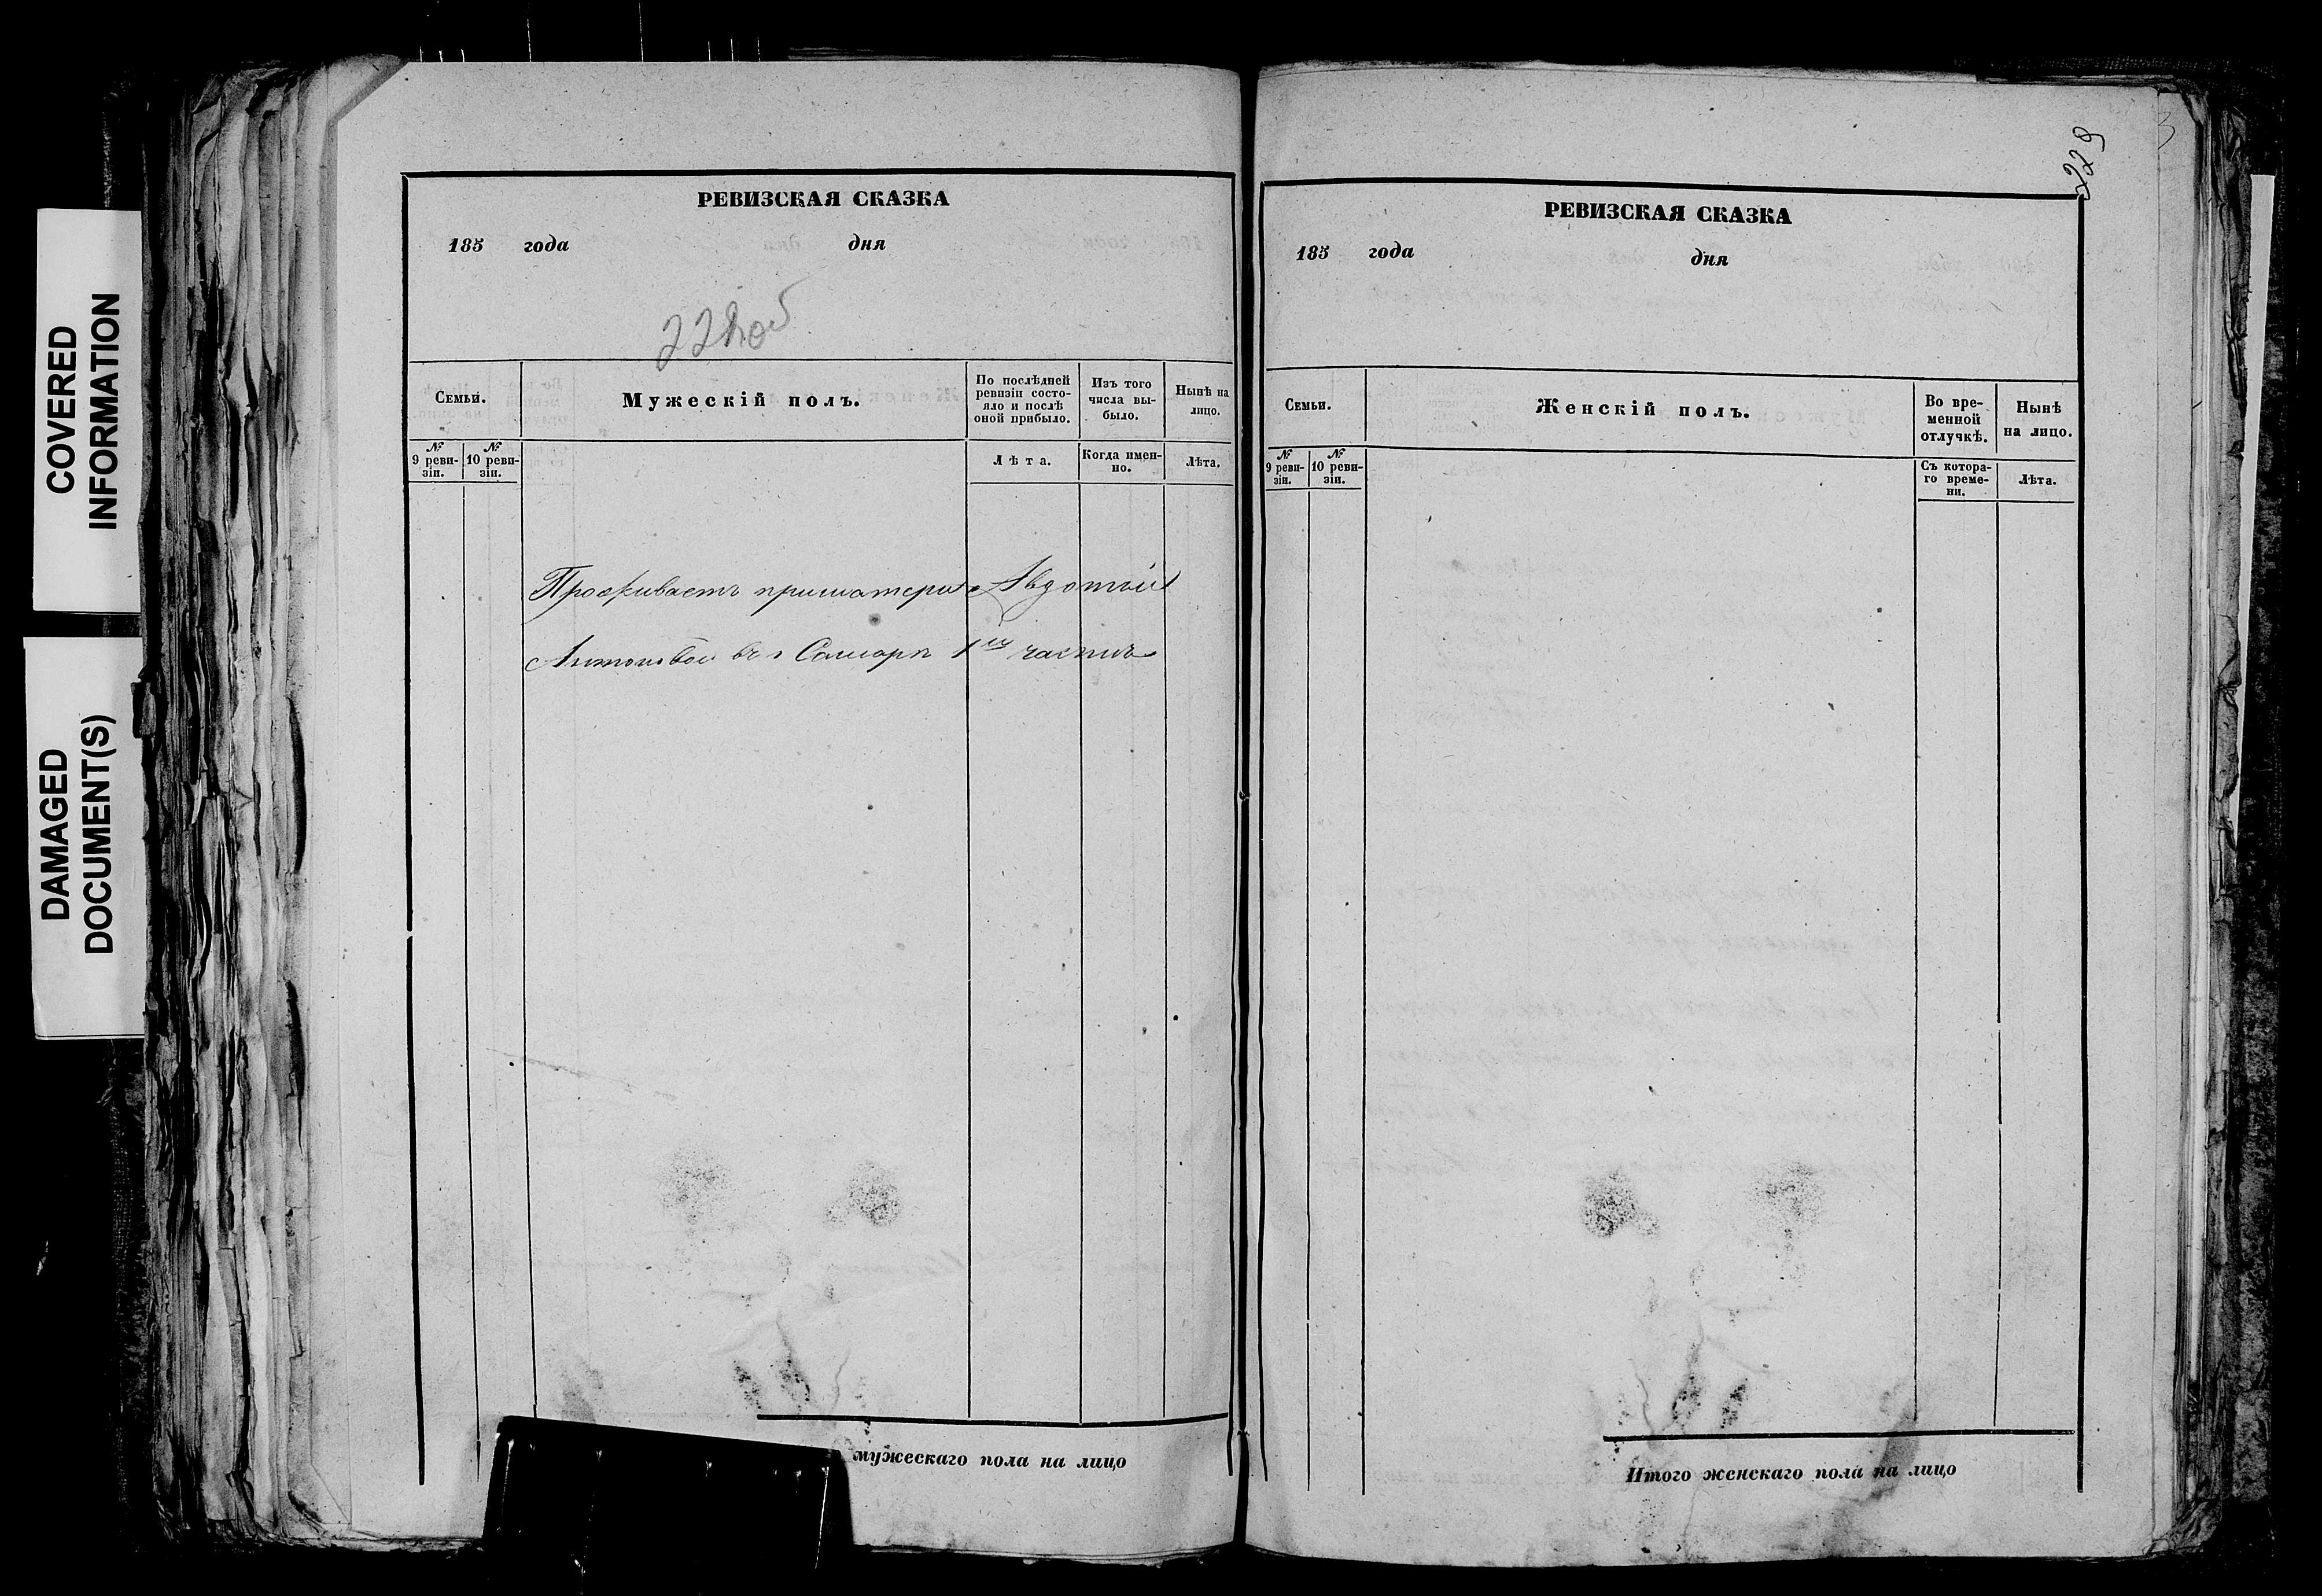 COVERED
INFORMATION
DAMAGED
DOCUMENT(S)
РЕВИЗСКАЯ СКАЗКА
185 года дня
228об
Семьи.
Мужескій полъ.
По послѣдней ревизіи состо-
яло и послѣ
оной прибыло.
Изъ того
числа вы-
было.
Нынѣ на
лицо.
№
9 реви-
зіи.
№
10 реви-
зіи.
Лѣта.
Когда имен-
но.
Лѣта.
Проживаетъ приматери Авдотьи
Антоновой въ г Самаре 1й части
мужескаго пола на лицо
229
РЕВИЗСКАЯ СКАЗКА
185 года дня
Семьи.
Женскій полъ.
Во вре-
менной
отлучкѣ.
Нынѣ
на лицо.
№
9 реви-
зіи.
№
10 реви-
зіи.
Съ котора-
го време-
ни.
Лѣта.
Итого женскаго пола на лицо